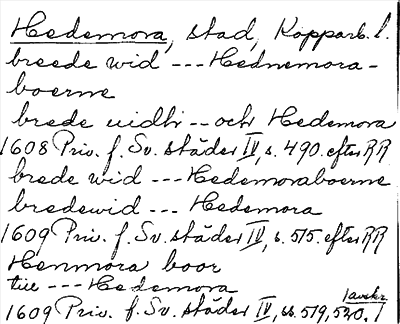 Hedemora, stad, Kopparb. l.
breede wid --- Hednemora-
boerne
brede uidtr -- och Hedemora
1608 Priv. f. Sv. städer IV, s. 490. efter RR
brede wid --- Hedemoraboerne
bredewid --- Hedemora
1609 Priv. f. Sv. städer IV, s. 515. efter RR
Henmora boor
tiil --- Hedemora
1609 Priv. f. Sv. städer IV, ss. 519, 520. [avskr.]